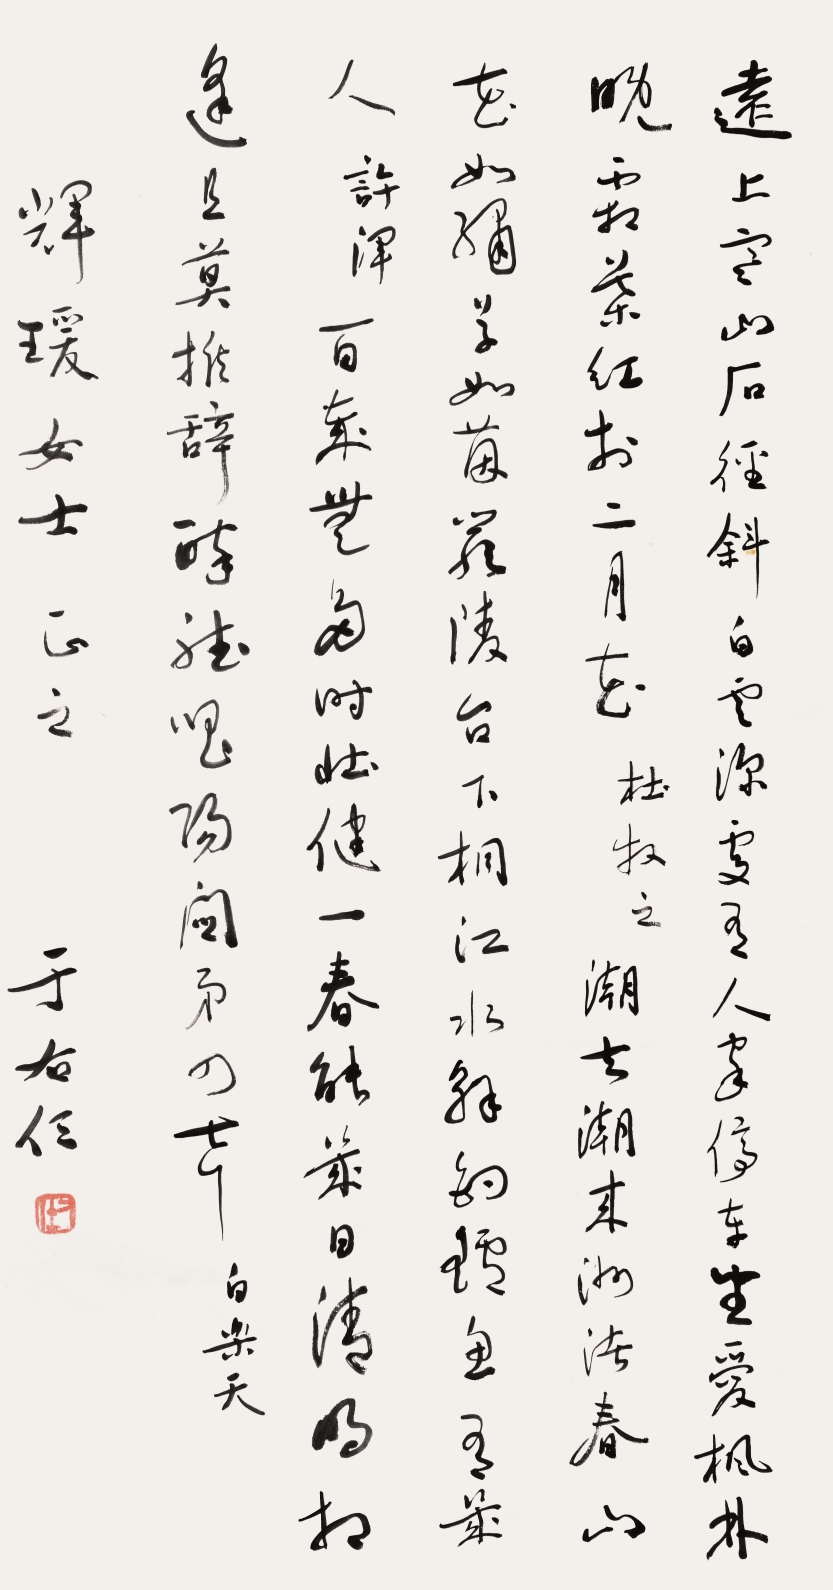 遠上寒山石徑斜白雲深處有人家停車坐愛楓林
晚霜葉紅於二月花 杜牧之 潮去潮來洲渚春山
花如繡草如茵嚴陵台下桐江水解釣鱸魚有幾
人 許渾 百歲無多時壯健一春能幾日清明相
逢且莫推辭醉聽唱陽關第四聲 白樂天
輝瑗女士 正之 于右任